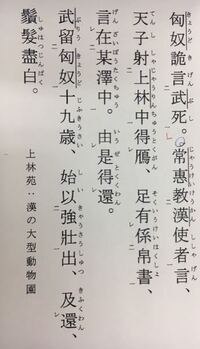 匈奴詭言武死。常惠教漢使者言、
天子射上林中得鴈、足有係帛書、
言在某澤中。由是得還。
武留匈奴十九歳、始以強壯出、及還、
鬚髮盡白。
上林苑：漢の大型動物園